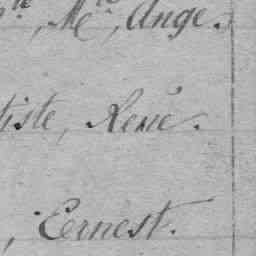 Mie, Ange.
tiste, René.
, Ernest.